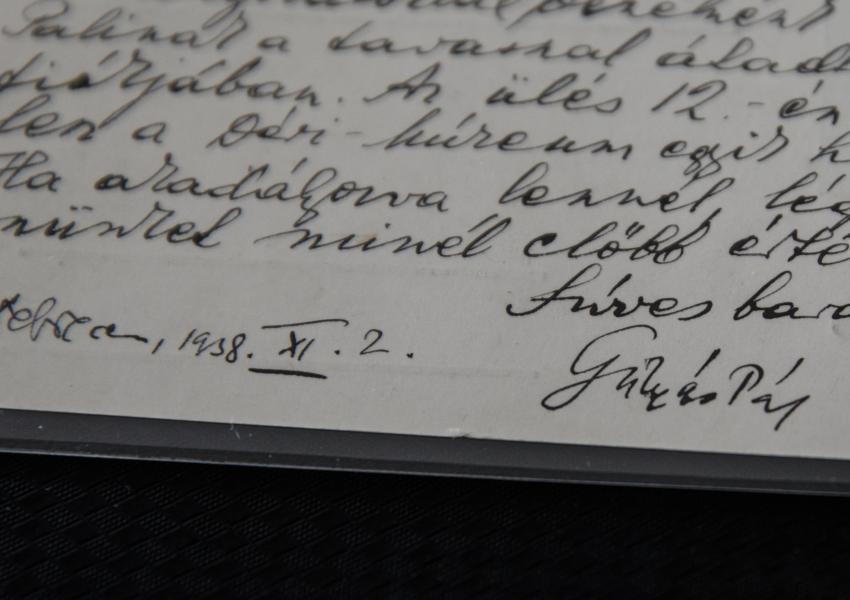 a tavasszal átad
tiszjában. Az ülés 12.-én
len a Déri-húzeum egyik h
Ha akadályozva lennél, lég
nünket minél előbb érte
Szíves bará
ebrecen, 1938. XI. 2.
Gulyás Pál